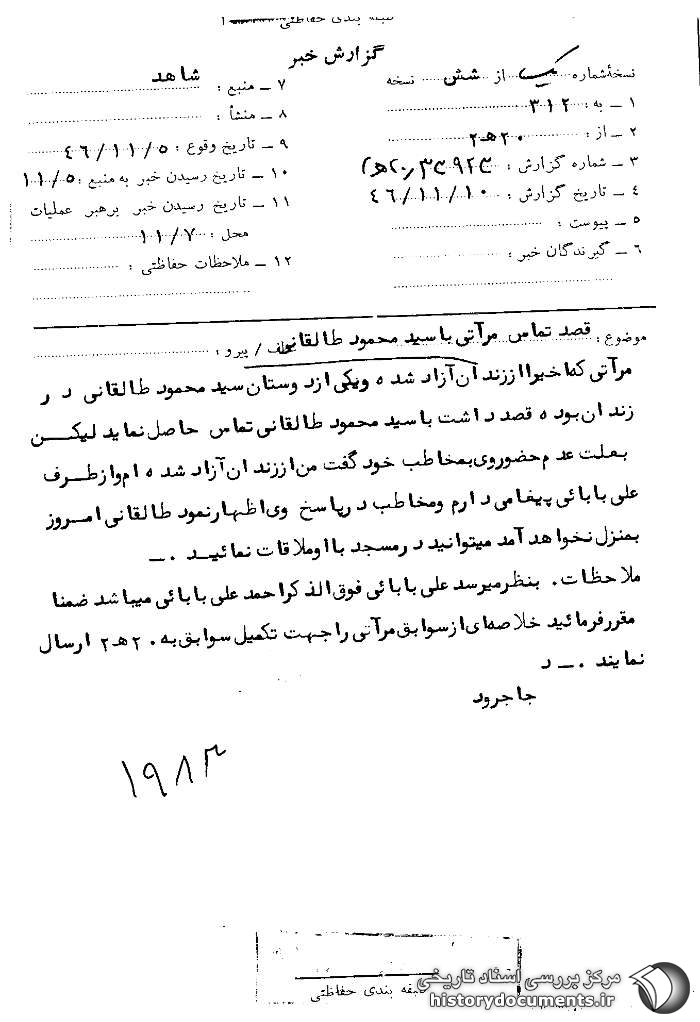 طبقه بندی حفاظتی
گزارش خبر
نسخهٔ شماره یک از شش نسخه
۱ ــ به: ۳۱۲
۲ ــ از: ۲۰ هـ ۲
۳ ــ شماره گزارش:
۴ ــ تاریخ گزارش: ۴۶/۱۱/۱۰
۵ ــ پیوست:
۶ ــ گیرندگان خبر:
۷ ــ منبع: شاهد
۸ ــ منشأ:
۹ ــ تاریخ وقوع: ۴۶/۱۱/۵
۱۰ ــ تاریخ رسیدن خبر به منبع: ۱۱/۵
۱۱ ــ تاریخ رسیدن خبر برهبر عملیات
محل: ۱۱/۷
۱۲ ــ ملاحظات حفاظتی:
موضوع: قصد تماس مرآتی با سید محمود طالقانی
عطف / پیرو:
مرآتی که اخیرا از زندان آزاد شده ویکی از دوستان سید محمود طالقانی در
زندان بوده قصد داشت با سید محمود طالقانی تماس حاصل نماید لیکن
بعلت عدم حضور وی بمخاطب خود گفت من از زندان آزاد شده ام واز طرف
علی بابائی پیغامی دارم ومخاطب در پاسخ وی اظهار نمود طالقانی امروز
بمنزل نخواهد آمد میتوانید در مسجد با او ملاقات نمائید . ــ
ملاحظات . بنظر میرسد علی بابائی فوق الذکر احمد علی بابائی میباشد ضمنا
مقرر فرمائید خلاصه‌ای از سوابق مرآتی را جهت تکمیل سوابق به ۲۰ هـ ۲ ارسال
نمایند . ــ د
جاجرود
طبقه بندی حفاظتی
مرکز بررسی اسناد تاریخی
historydocuments.ir